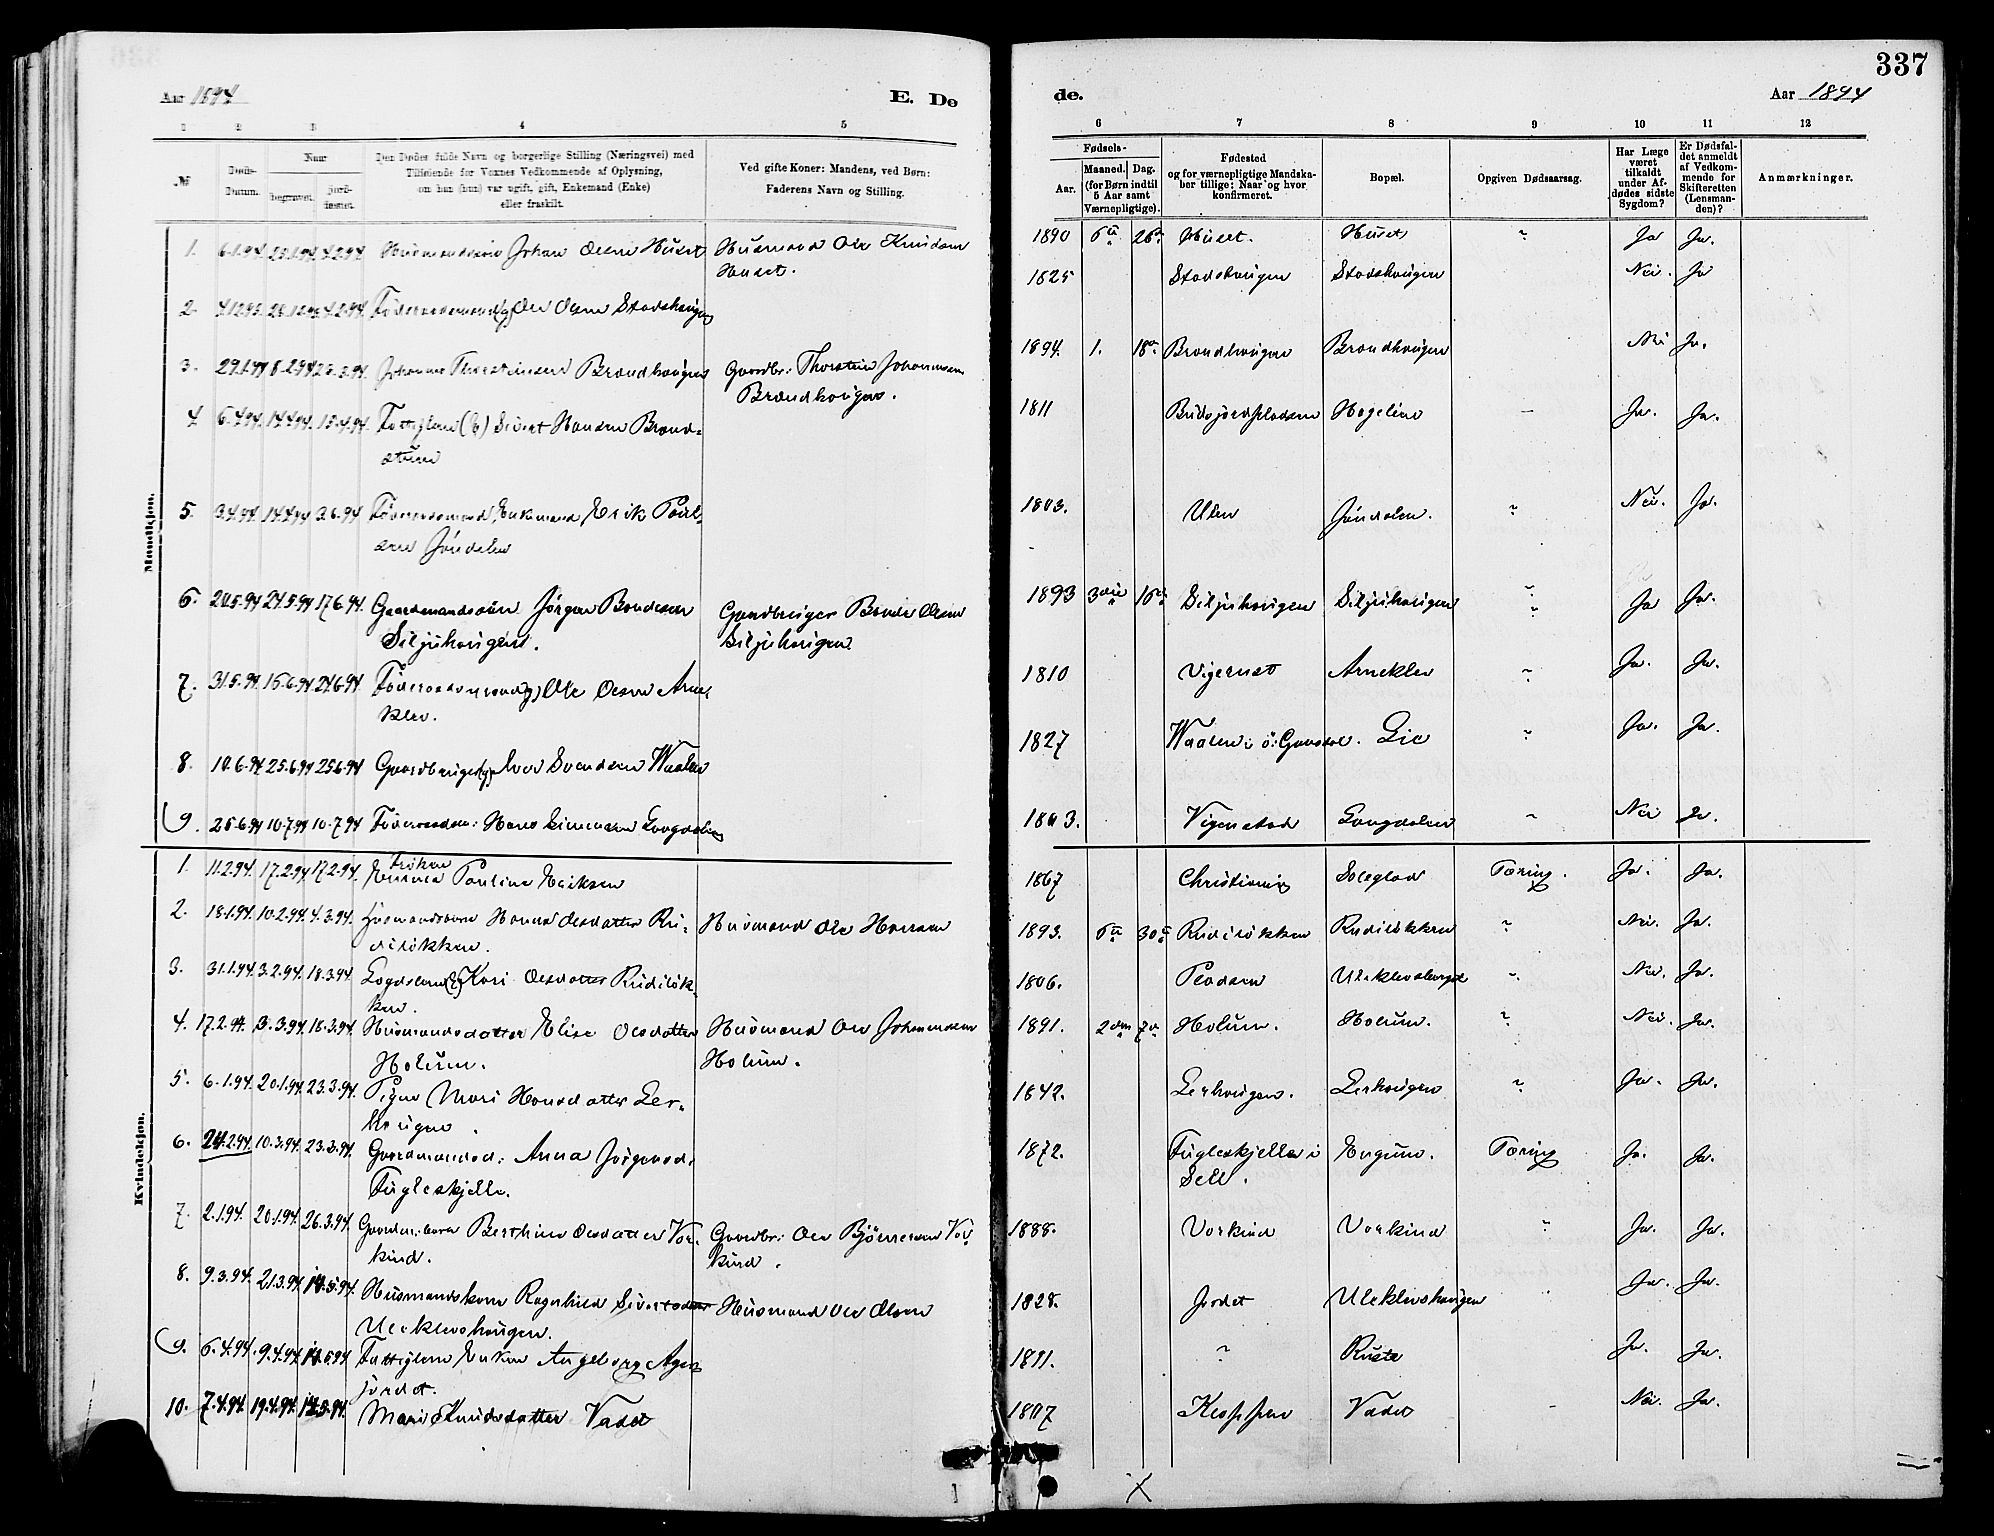 337
Aar 1894
E. De
de.
Aar 1894
1 2 3 4 5
6 7 8 9 10 11 12
№
Døds-
Datum.
Naar
begravet.
jord-
fæstet.
Den Dødes fulde Navn og borgerlige Stilling (Næringsvei) med
Tilføiende for Voxnes Vedkommende af Oplysning,
om han (hun) var ugift, gift, Enkemand (Enke)
eller fraskilt.
Ved gifte Koner: Mandens, ved Børn:
Faderens Navn og Stilling.
Fødsels-
Aar.
Maaned. Dag.
(for Børn indtil
5 Aar samt
Værnepligtige).
Fødested
og for værnepligtige Mandska-
ber tillige: Naar og hvor
konfirmeret.
Bopæl.
Opgiven Dødsaarsag.
Har Læge
været
tilkaldt
under Af-
dødes sidste
Sygdom?
Er Dødsfal-
det anmeldt
af Vedkom-
mende for
Skifteretten
(Lensman-
den)?
Anmærkninger.
Mandkjøn.
1. 6.1.94 4.2.94 Husmandssøn Johan Olsen Huset Husmand Ole Knudsen
Huset.
1890 26 Huset. Huset " Ja Ja.
2. Ole Olsen Stadshaugen
1825 Stadshaugen Stadshaugen Nei. Ja
3. 29.1.94 23.3.94 Johannes Thorsteinsen Brændhaugen Gaardbr: Thorstein Johannesen
Brændhaugen.
1894. 1. 18 Brændhaugen Brændhaugen Nei Ja.
4 6.4.94 14.4.94 15.4.94 Sivert Hansen Brænd-
1811 Hageline – Ja. Ja.
5. 3.4.94. 14.4.94 3.6.94 Føderaadsmand, Enkemand Erik Poul-
sen Jøndalen
1803. Ulen Jøndalen. " Nei. Ja.
6. 20.5.94 24.5.94 17.6.94. Gaardmandssøn Jørgen Bondesen
Siljuhaugen.
Gaardbruger Olsen
Siljuhaugen
1893 Siljuhaugen Siljuhaugen " Ja Ja.
7. 31.5.94 15.6.94 24.6.94 Ole Olsen Arne-
klev.
1810 Vigerust Arneklev " Ja. Ja.
8. 10.6.94 25.6.94 25.6.94 Gaardbruger Iver Svendsen Waalen
1827 Waalen i Lie " Ja. Ja.
9. 25.6.94 10.7.94 10.7.94 Hans Simensen Langdalen
1803. Vigenstad Langdalen " Nei Ja.
Kvindekjøn.
1. 11.2.94. 17.2.94 17.2.94. Frøken
Emma Pauline Eriksen
1867 Christiania Soleglad Tæring. Ja. Ja.
2. 18.1.94. 10.2.94. 4.3.94. Hanna Olesdatter Ru-
diløkken.
Husmand Ole Hansen
1893. 30 Rudiløkken Rudiløkken " Nei. Ja.
3. 31.1.94 3.2.94. 18.3.94 Kari Olesdatter Rudiløk-
ken.
1806. Pladsen " Nei. Ja.
4. 17.2.94. 3.3.94. 18.3.94 Husmandsdatter Elise Olesdatter
Holum.
Husmand Ole Johannessen
Holum.
1891. Holum. Holum. " Nei. Ja.
5. 6.1.94. 20.1.94. 23.3.94. Pigen Mari Hansdatter Ler-
haugen.
1842. Lerhaugen. Lerhaugen " Ja. Ja.
6. 24.2.94. 10.3.94. 23.3.94. Gaardmandsd: Anna Jørgensd.
Fugleskjelle.
1872. Fugleskjelle i
Sell.
Tæring Ja. Ja.
7. 2.1.94. 20.1.94. 26.3.94. Berthine Olesdatter Vor-
kind.
Gaardbr: Ole Bjørnersen Vor-
kind.
1888. Vorkind Vorkind " Ja. Ja.
8. 9.3.94. 21.3.94. Husmandskone Ragnhild Sivertsdatter
Uleklevshaugen.
Husmand Ole Olsen
1828. Jordet Uleklevshaugen Ja. Ja.
9. 6.4.94. 9.4.94. Fattiglem Enken
jordet.
1811. " Ruste Ja. Ja.
10. 7.4.94. 19.4.94. Mari Knudsdatter Vadet
1807 Kleppen Vadet Nei. Ja.